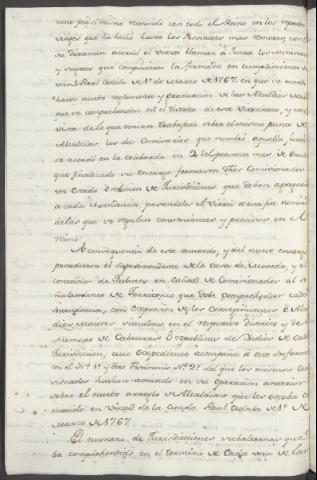 viages que ha hecho hasta las Provincias mas remotas, con
su dictamen acordó el Virrey llamar á Junta los Ministros
y sugetos que compusieron la formada en cumplimiento de
una Real Cedula de 1º de Marzo de 1767. en que se mandó
hacer nuebo reglamento y graduacion de las Alcaldias Maiores
que se comprehenden en el distrito de este Virreynato, y con
vista de lo que tenian trabajado sobre el mismo punto de
Alcaldias los dos Comisarios que nombró aquella Junta
se acordó en la celebrada en 2 del presente mes de
que finalizado su encargo formasen dhos Comisionados
un Estado de las Jurisdicciones que deban agregarse
á cada Intendencia, pasandolo al Virrey
de las que se regulan convenientes y precisas en el
Reino.
A consequencia de este acuerdo, y del nuevo encargo
procedieron el Superintendente de la Casa de Moneda, y el
Contador de Tributos en calidad de Comisionados al se-
ñalamiento de Territorios que debe comprehender cada
Intendencia, con expresion de los Corregimientos ó Alcal-
dias Maiores situadas en el respectivo Distrito, y del
Numero de Cabeceras ó republicas de Indios de cada
Jurisdiccion, cuio expediente acompaña á este Informe
con el Nº 1º y otro Testimonio Nº 2º del que los mismos Co-
misionados havian actuado en su operacion anterior
sobre el nuebo arreglo de Alcaldias que les estaba co-
metido en virtud de la citada Real Cedula de 1º de
Marzo de 1767.
El numero de Jurisdicciones subalternas que
ba comprehendido en el termino de Cada una de las